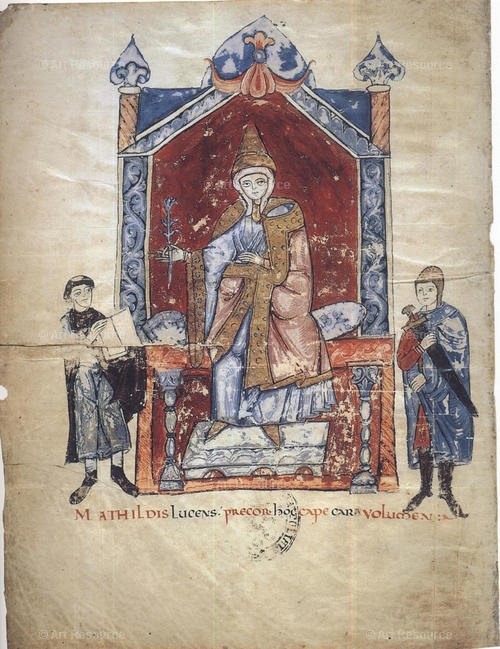 ©Art Resource ©Art Resource
©Art Resource
©Art Resource ©Art Resource
MATHILDIS LUCENS: PRECOR hoc CAPE CARA VOLUMEN
©Art Resource ©Art Resource